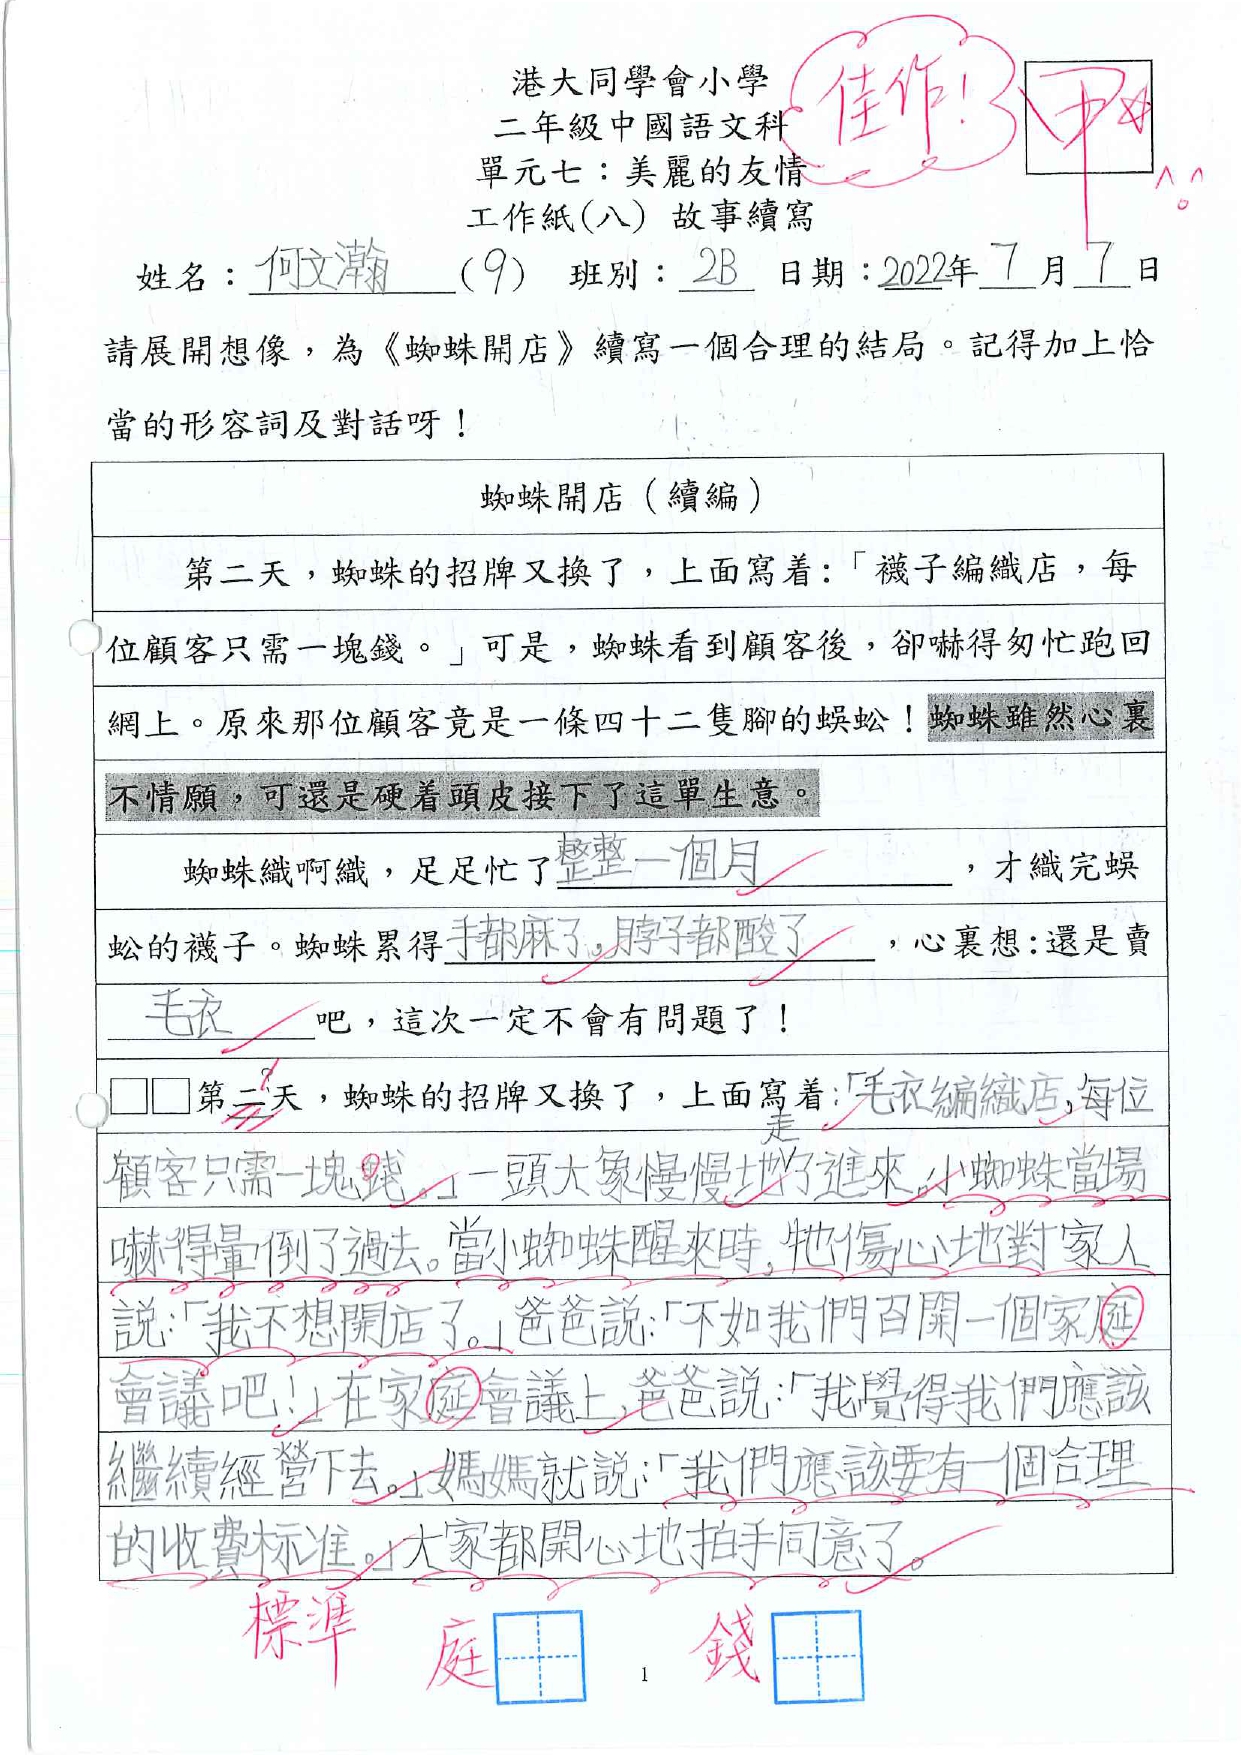 港大同學會小學
佳作！
甲
二年級中國語文科
單元七：美麗的友情
工作紙(八) 故事續寫
姓名：何文瀚 (9) 班別：2B 日期：2022年7月7日
請展開想像，為《蜘蛛開店》續寫一個合理的結局。記得加上恰
當的形容詞及對話呀！
蜘蛛開店（續編）
第二天，蜘蛛的招牌又換了，上面寫着:「襪子編織店，每
位顧客只需一塊錢。」可是，蜘蛛看到顧客後，卻嚇得匆忙跑回
網上。原來那位顧客竟是一條四十二隻腳的蜈蚣！蜘蛛雖然心裏
不情願，可還是硬着頭皮接下了這單生意。
蜘蛛織啊織，足足忙了整整一個月，才織完蜈
蚣的襪子。蜘蛛累得手都麻了，脖子都酸了，心裏想:還是賣
毛衣吧，這次一定不會有問題了！
□□第二天，蜘蛛的招牌又換了，上面寫着:「毛衣編織店，每位
走
顧客只需一塊錢。」一頭大象慢慢地了進來，小蜘蛛當場
嚇得暈倒了過去。當小蜘蛛醒來時，牠傷心地對家人
說:「我不想開店了。」爸爸說:「不如我們召開一個家庭
會議吧！」在家庭會議上，爸爸說:「我覺得我們應該
繼續經營下去。」媽媽就說:「我們應該要有一個合理
的收費标准。」大家都開心地拍手同意了。
標準
庭
錢
1